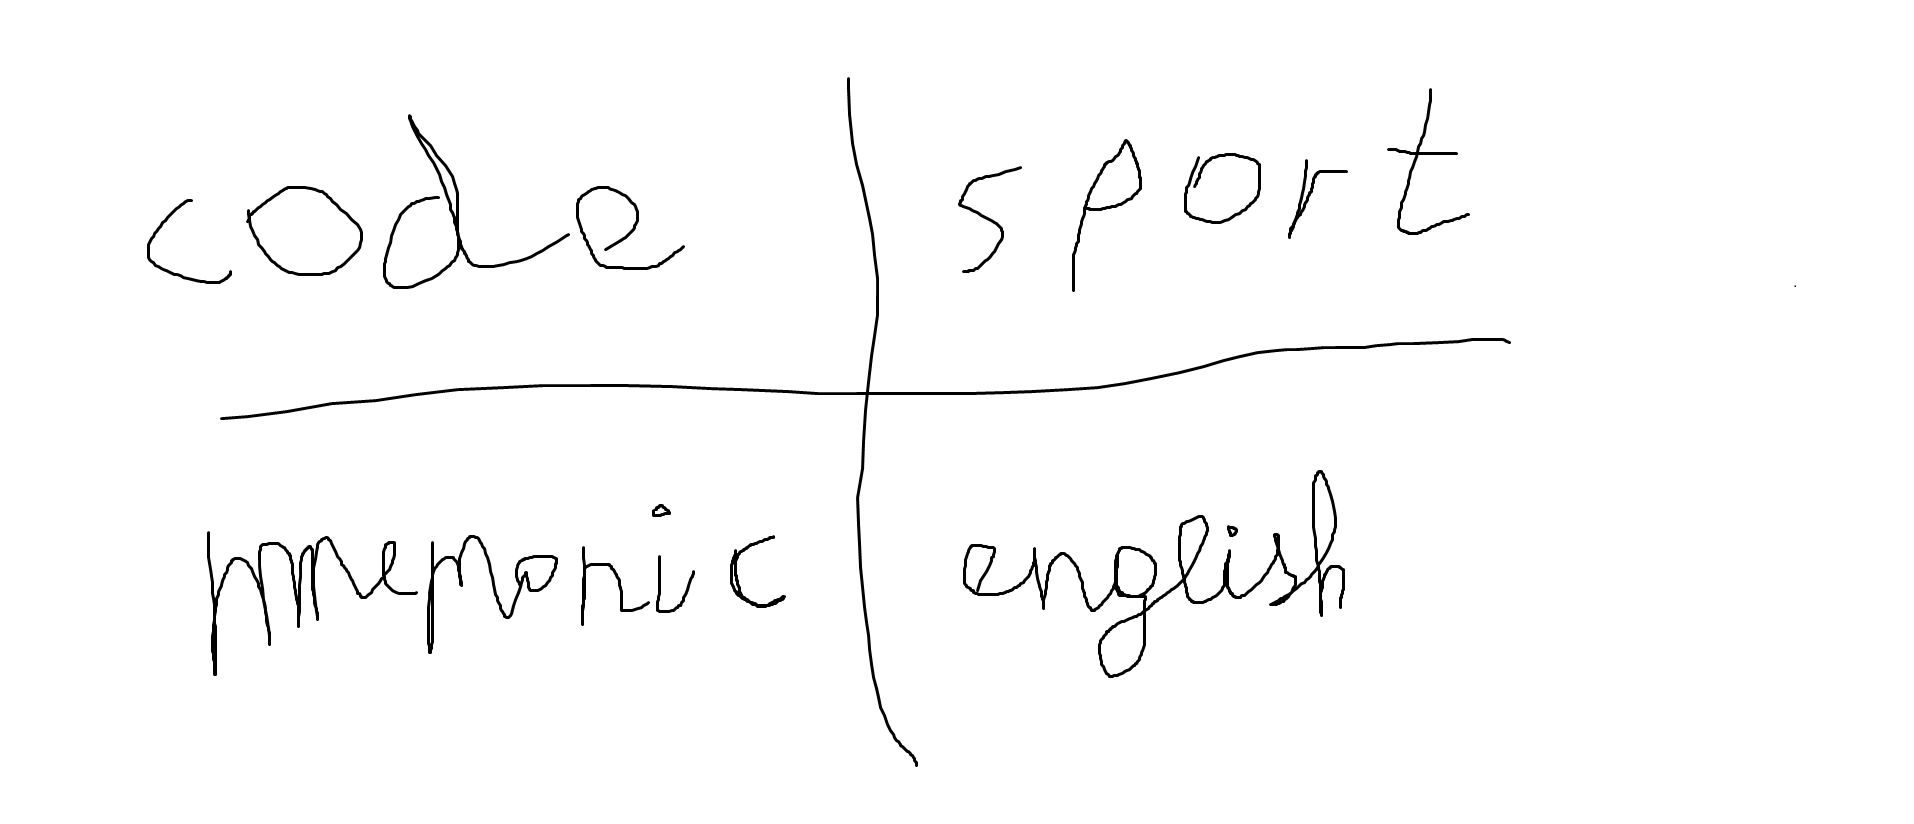 code sport
mnemonic english